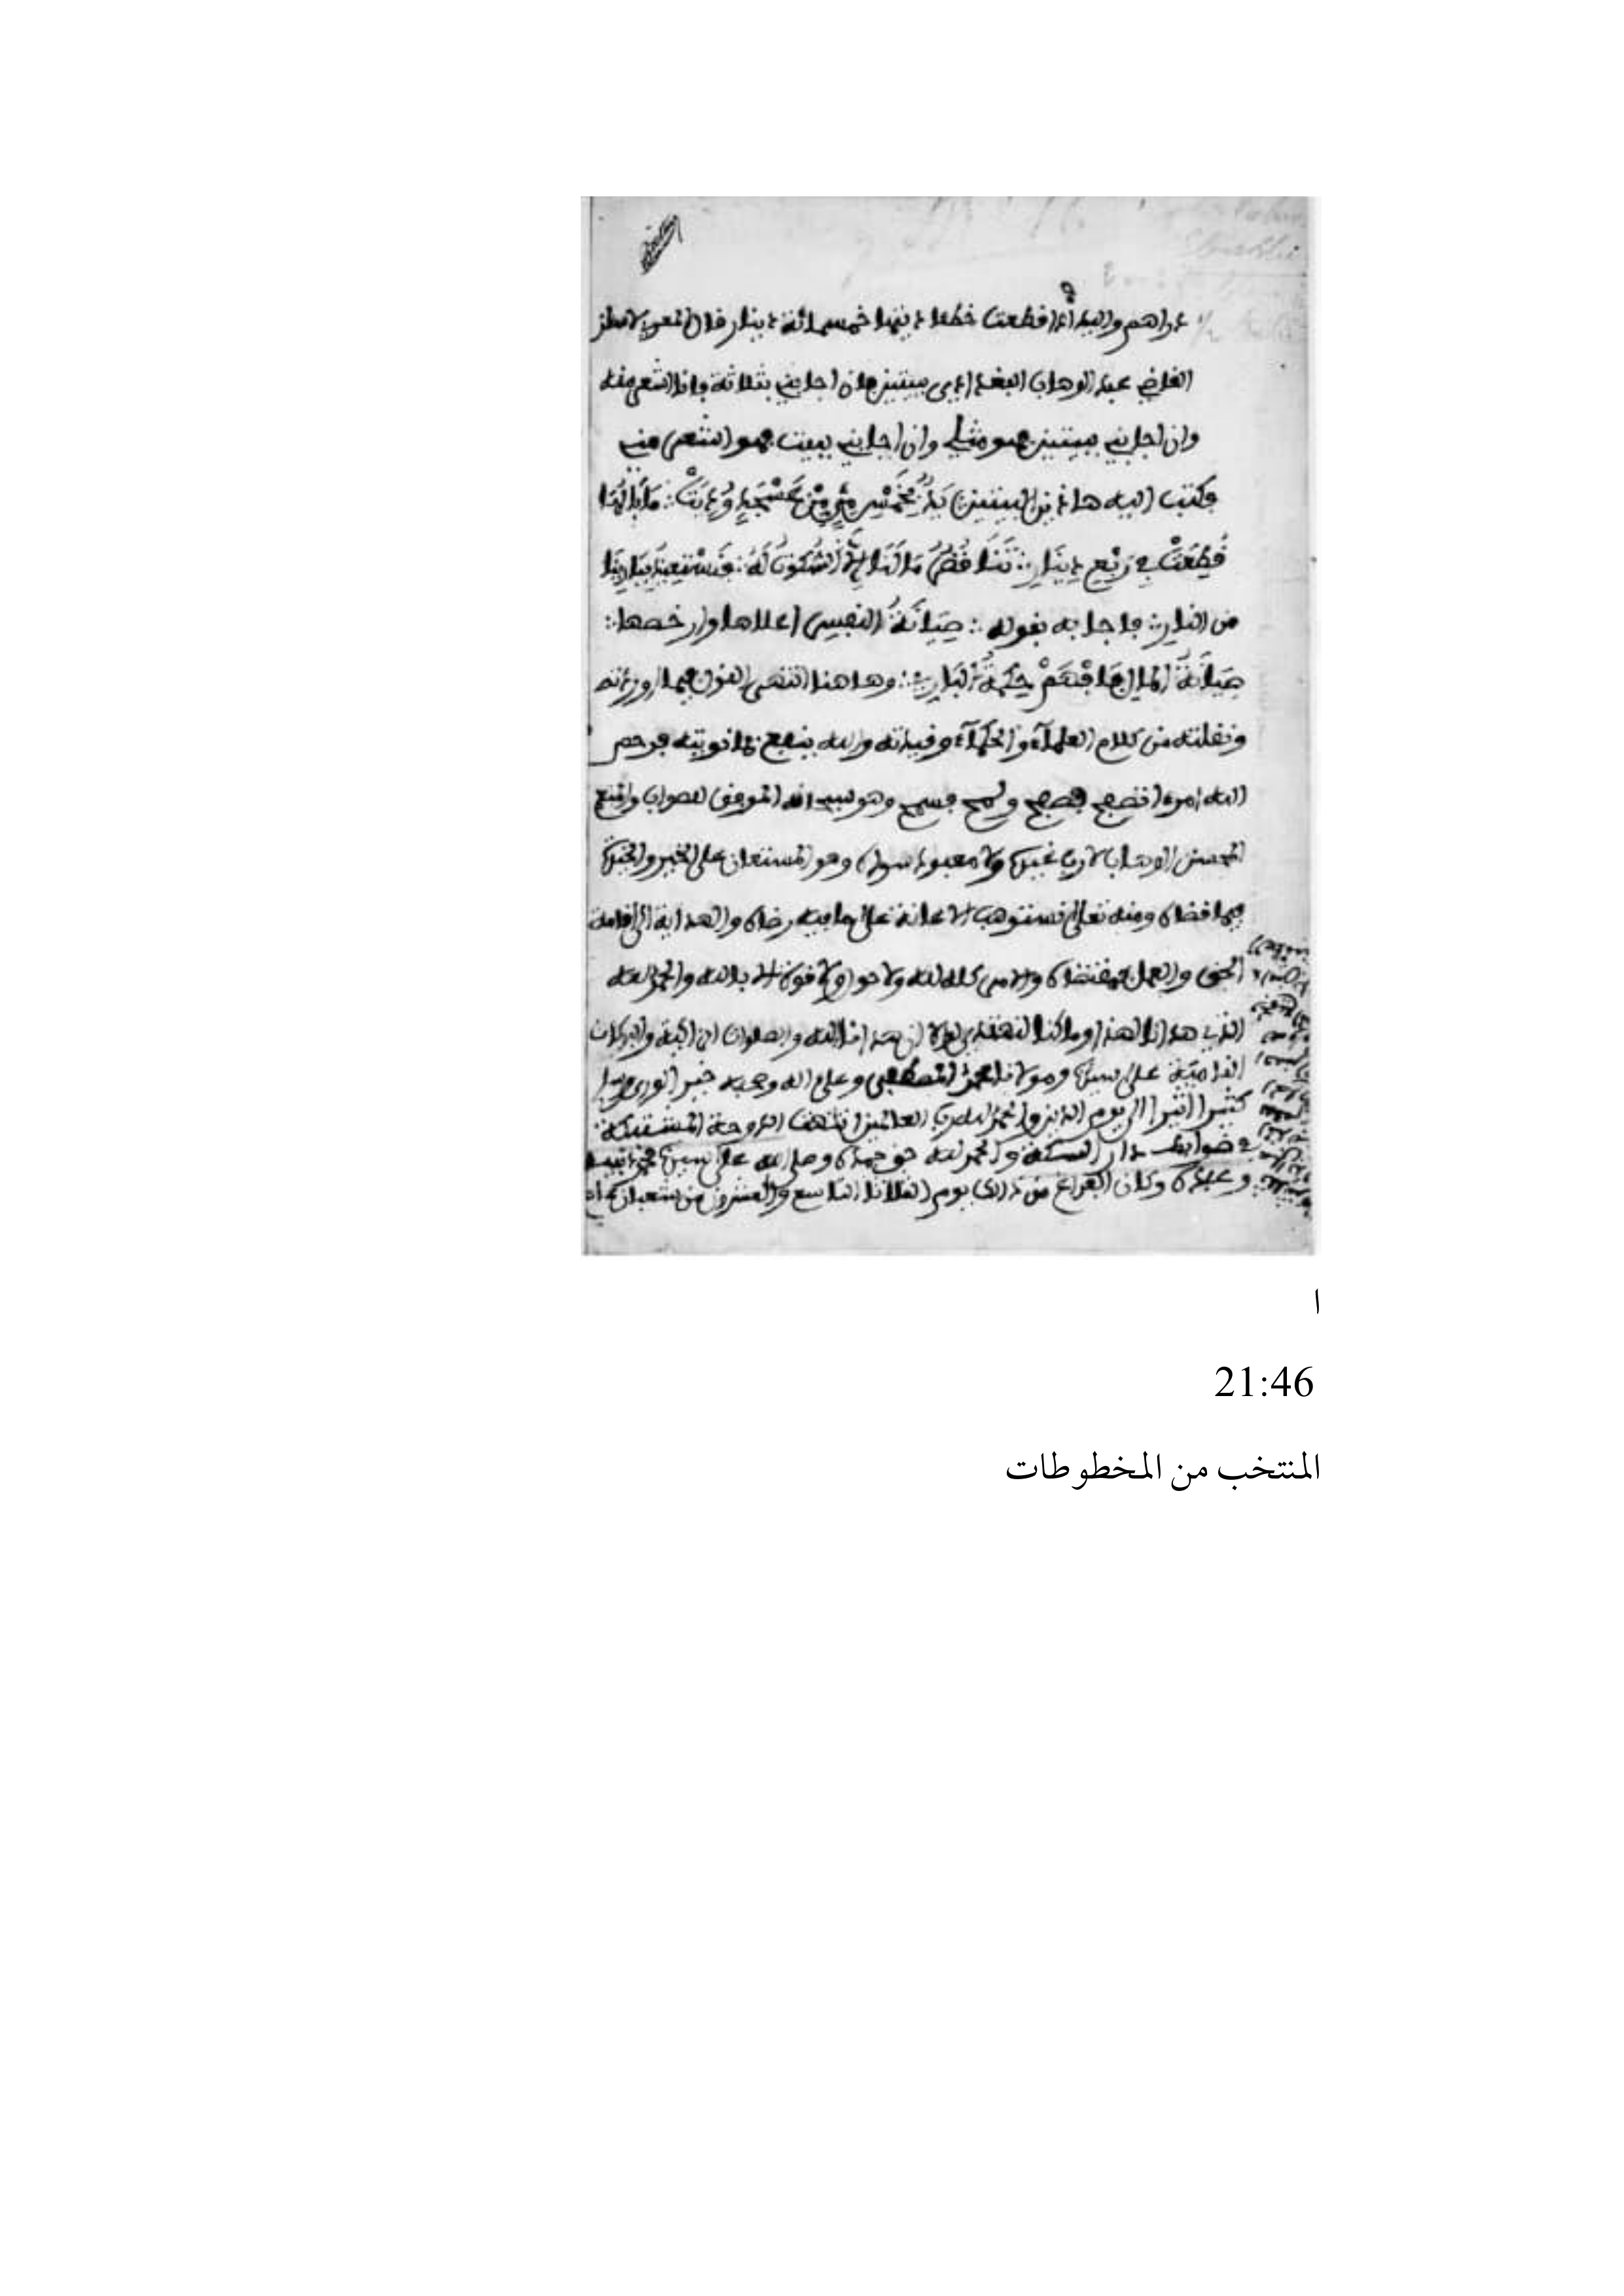 دراهم واليد اذا قطعت خطا دينها خمسمائة دينار قال المعرى لامتحن
القاضي عبد الوهاب البغدادي ببيتين فان اجابني بثلاثة فانا اشعر منه
وان اجابني ببيتين فهو مثلي وان اجابني ببيت فهو اشعر مني
فكتب اليه هاذين البيتين يَدٌ بِخَمْسِ مِئٍ مِنْ عَسْجَدٍ وُدِيَتْ ∴ مَا بَالُهَا
قُطِعَتْ فِي رُبْعِ دِينَارِ ∴ تَنَاقُضٌ مَا لَنَا إِلَّا السُّكُوتُ لَهُ ∴ وَنَسْتَعِيذُ بِبَارِينَا
من النار ∴ فاجابه بقوله ∴ صِيَانَةُ النفس اغلاها وارخصها ∴
صِيَانَةُ المال فَافْهَمْ حِكْمَةَ البَارِي ∴ وهاهنا انتهى القول فيما اوردته
ونقلته من كلام العلماء والحكماء وقيدته والله ينفع بما نويته فرحم
الله امرءا نصح ولمح فسمح وهو سبحانه الموفق للصواب والمنعم
المحسن الوهاب لا رب غيره ولا معبود سواه وهو المستعان على الخير والخيرة
فيما قضاه ومنه تعلى نستوهب الاعانة على ما فيه رضاه والهداية الى اقامة
الحق والعمل بمقتضاه والامر كله لله ولا حول ولا قوة الا بالله والحمد لله
الذي هدانا لهذا وما كنا لنهتدي لولا ان هدانا الله والصلوات الزاكية والبركات
النامية على سيدنا ومولانا محمد المصطفى وعلى اله وصحبه خير الورى وسلم
كثيرا اثيرا الى يوم الدين والحمد لله رب العالمين انتهت الدوحة المشتبكة
في ضوابط دار السكة والحمد لله حق حمده وصلى الله على سيدنا محمد نبيه
وعبده وكان الفراغ من ذلك يوم الثلاثا التاسع والعشرون من شعبان
ا
21:46
المنتخب من المخطوطات